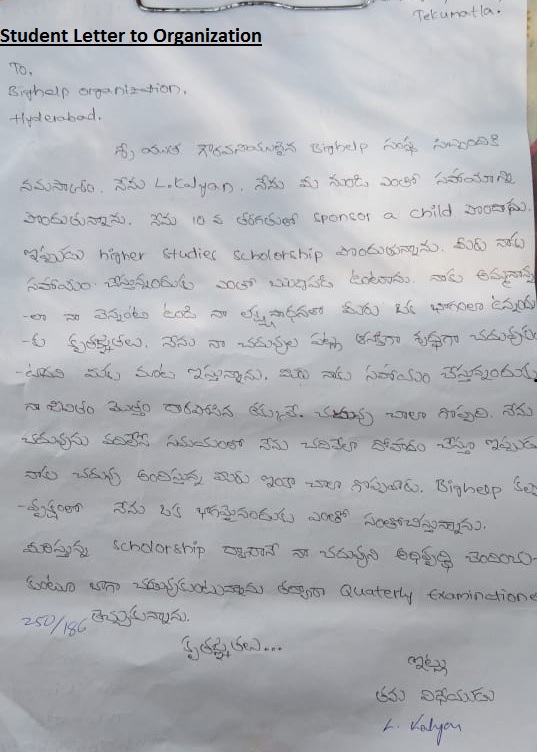 Tekumatla.
Student Letter to Organization
To,
Bighelp organization,
Hyderabad.
శ్రీ యుత గౌరవనీయులైన Bighelp సంస్థ సిబ్బందికి
నమస్కారం. నేను L.Kalyan. నేను మీ నుండి ఎంతో సహాయాన్ని
పొందుతున్నాను. నేను 10 వ తరగతులో sponsor a child పొందాను.
ఇప్పుడు higher studies scholership పొందుతున్నాను. మీరు నాకు
సహాయం చేస్తున్నందుకు ఎంతో ఋణపడి ఉంటాను. నాకు అమ్మనాన్న
-లా నా వెన్నంటే ఉండి నా లక్ష్య సాధనలో మీరు ఒక భాగంలా ఉన్నందు
-కు కృతజ్ఞతలు. నేను నా చదువుల పట్ల ఆసక్తిగా శ్రద్ధగా చదువుకుం
-టానని మాట ఇస్తున్నాను. మీరు నాకు సహాయం చేస్తున్నందుకు
నా జీవితం మొత్తం దారపోసిన తక్కువే. చదువు చాలా గొప్పది. నేను
చదువును వదిలేసే సమయంలో నేను చదివేలా చేస్తూ ఇప్పుడు
నాకు చదువు అందిస్తున్న మీరు ఇంకా చాలా గొప్పవారు. Bighelp
నేను ఒక భాగమైనందుకు ఎంతో సంతోషిస్తున్నాను.
scholorship ద్వారానే నా చదువుని అభివృద్ధి చెందించు-
కుంటూ బాగా చదువుకుంటున్నాను తర్వాత Quaterly Examinctione
250/186 తెచ్చుకున్నాను.
కృతజ్ఞతలు...
ఇట్లు
తమ విధేయుడు
L. Kalyan